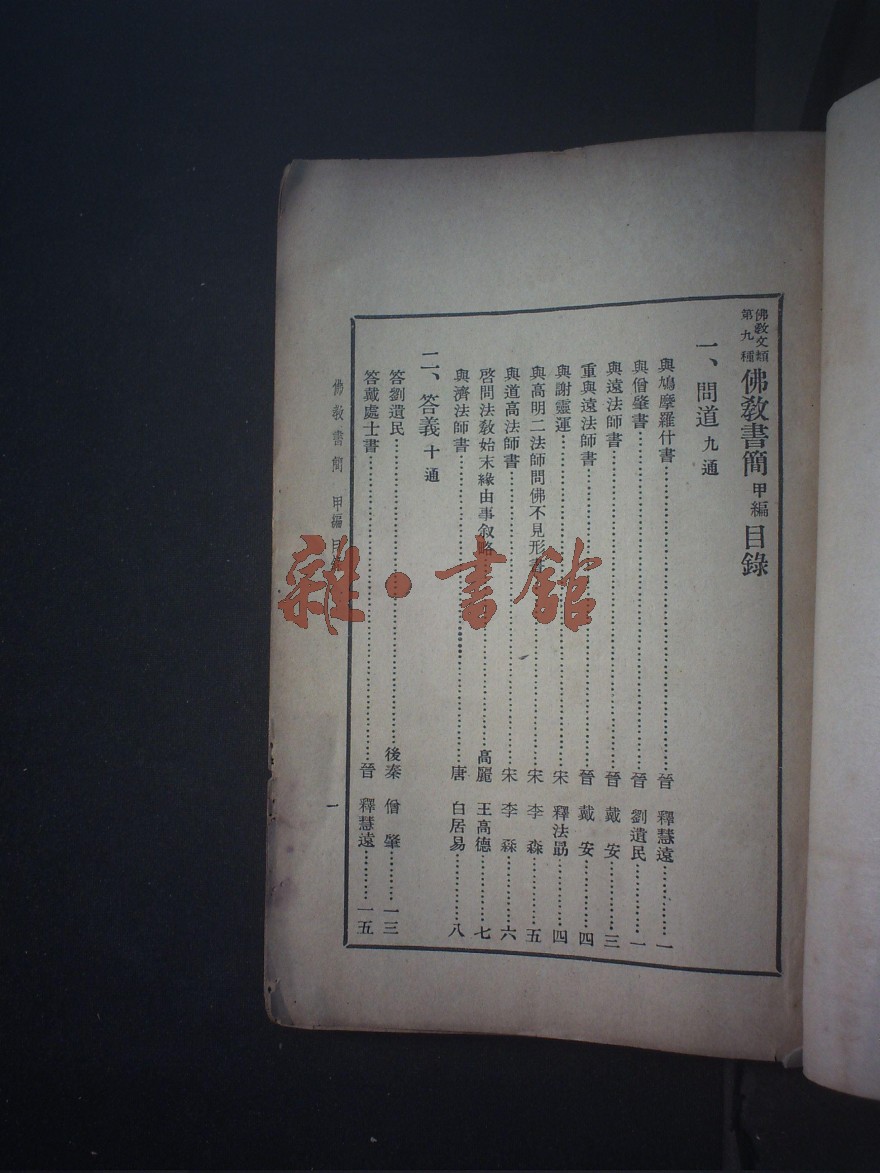 佛教文類第九種 佛教書簡 甲編 目錄
一、問道 九通
與鳩摩羅什書……晉 釋慧遠……一
與僧肇書……晉 劉遺民……一
與遠法師書……晉 戴安……三
重與遠法師書……晉 戴安……四
與謝靈運……宋 釋法勗……四
與高明二法師問佛不見形書……宋 李森……五
與道高法師書……宋 李森……六
啓問法教始末緣由事叙略……高麗 王高德……七
與濟法師書……唐 白居易……八
二、答義 十通
答劉遺民……後秦 僧肇……一三
答戴處士書……晉 釋慧遠……一五
佛教書簡 甲編 目 一
雜·書館